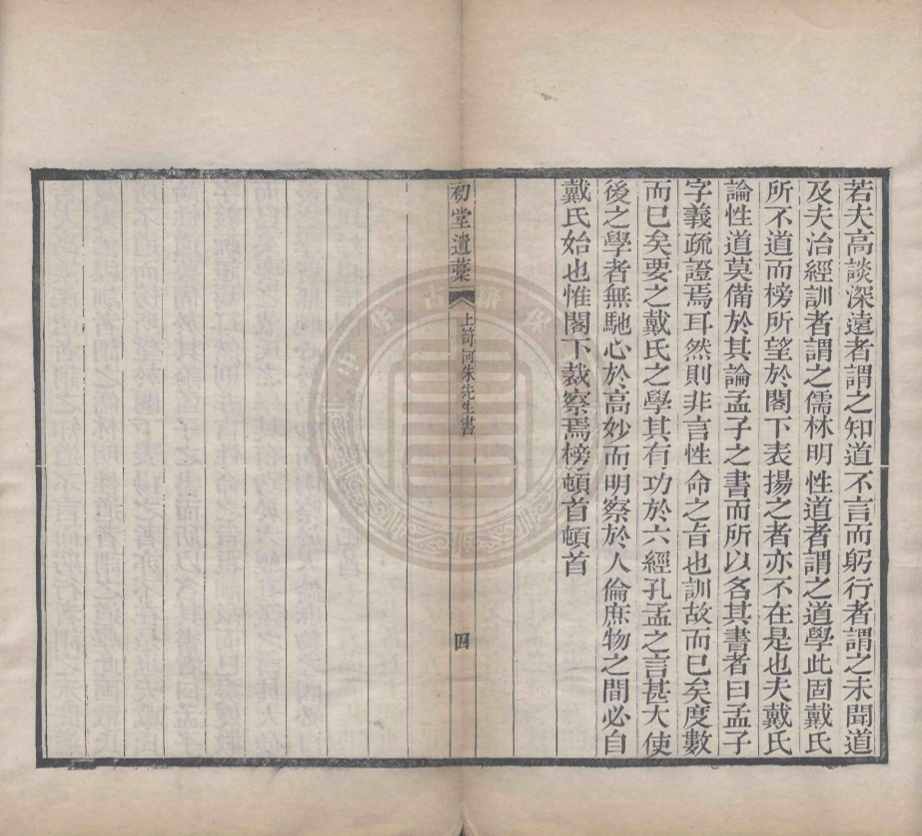 若夫高談深遠者謂之知道不言而躬行者謂之未聞道
及夫治經訓者謂之儒林明性道者謂之道學此固戴氏
所不道而榜所望於閣下表揚之者亦不在是也夫戴氏
論性道莫備於其論孟子之書而所以名其書者曰孟子
字義疏證焉耳然則非言性命之旨也訓故而已矣度數
而已矣要之戴氏之學其有功於六經孔孟之言甚大使
後之學者無馳心於高妙而明察於人倫庶物之間必自
戴氏始也惟閣下裁察焉榜頓首頓首
初堂遺藳
上笥河朱先生書
四